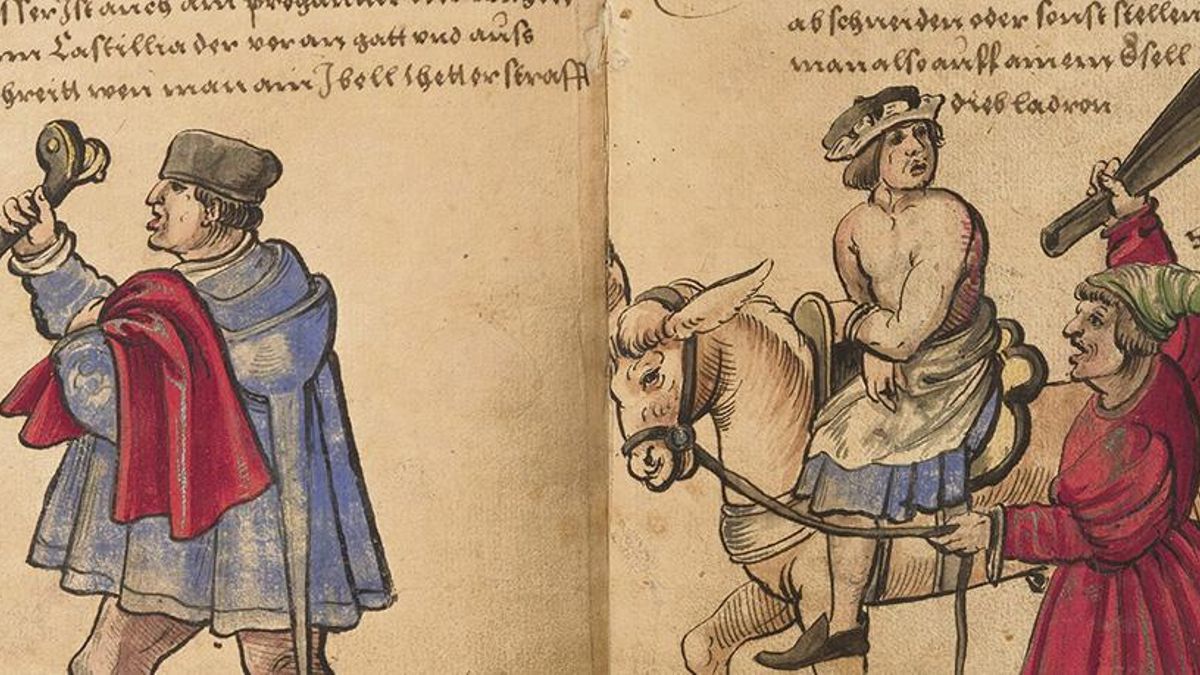 ser Ist auch ain progannir
Castillia der voran gatt vnd auss
schreitt wen man ain Ibell thetter strafft
abschneiden oder sonst stellen
man also auff ainem Esell
dieb ladron